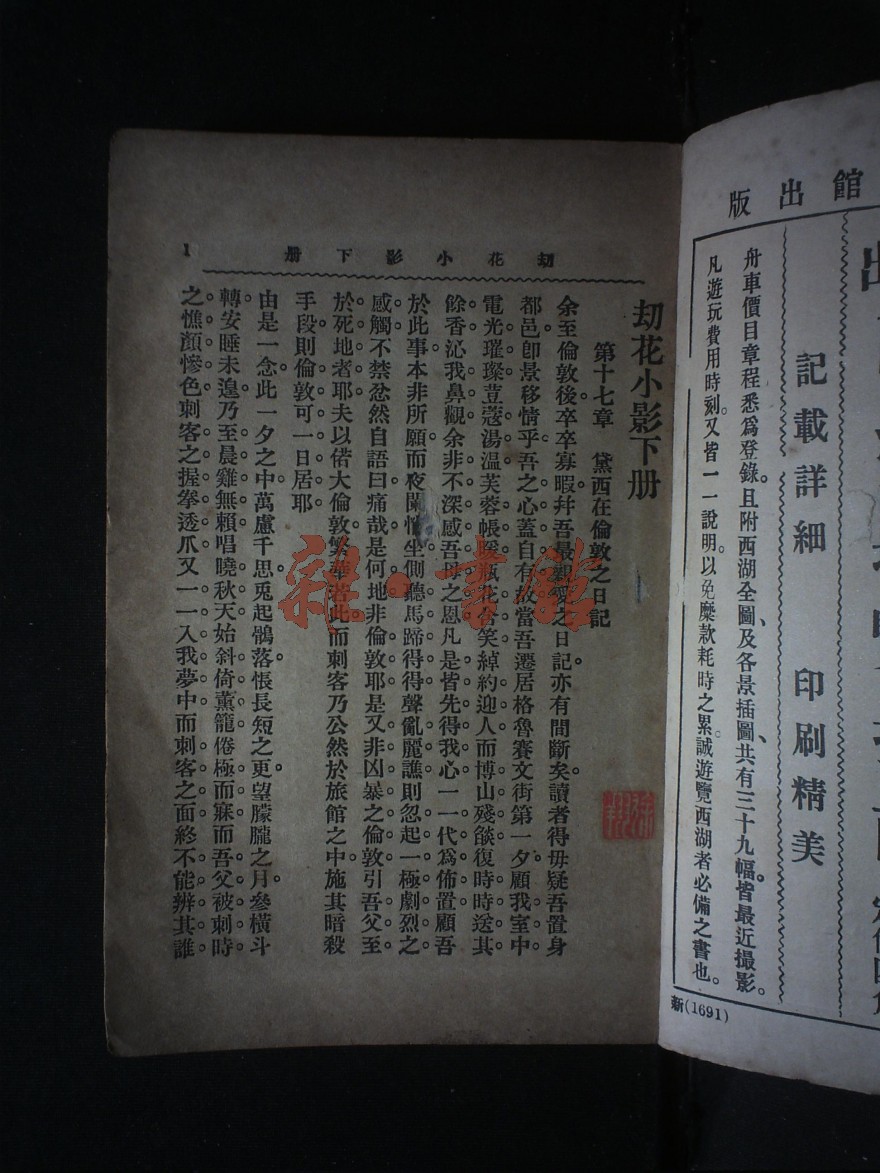 館出版
記載詳細　印刷精美
舟車價目章程。悉爲登錄。且附西湖全圖、及各景插圖、共有三十九幅。皆最近攝影。
凡遊玩費用時刻。又皆一一說明。以免糜款耗時之累。誠遊覽西湖者必備之書也。
新(1691)
劫花小影下册
1
劫花小影下册
第十七章　黛西在倫敦之日記
余至倫敦後。卒卒寡暇。幷吾最親愛之日記。亦有間斷矣。讀者得毋疑吾置身
都邑。卽景移情乎。吾之心蓋自有故。當吾遷居格魯賽文街第一夕。顧我室中。
電光璀璨。荳蔻湯温。芙蓉帳暖。瓶花含笑。綽約迎人。而博山殘燄。復時時送其
餘香。沁我鼻觀。余非不深感吾母之恩。凡是皆先得我心。一一代爲佈置。顧吾
於此事本非所願。而夜闌悄坐。側聽馬蹄得得聲亂麗譙。則忽起一極劇烈之
感觸。不禁忿然自語曰。痛哉。是何地。非倫敦耶。是又非凶暴之倫敦。引吾父至
於死地者耶。夫以偌大倫敦。繁華若此。而刺客乃公然於旅館之中。施其暗殺
手段。則倫敦可一日居耶。
由是一念。此一夕之中。萬慮千思。兎起鶻落。悵長短之更。望朦朧之月。參橫斗
轉。安睡未遑。乃至晨雞無賴。唱曉秋天。始斜倚薰籠。倦極而寐。而吾父被刺時
之憔顏慘色。刺客之握拳透爪。又一一入我夢中。而刺客之面。終不能辨其誰
雜·書館